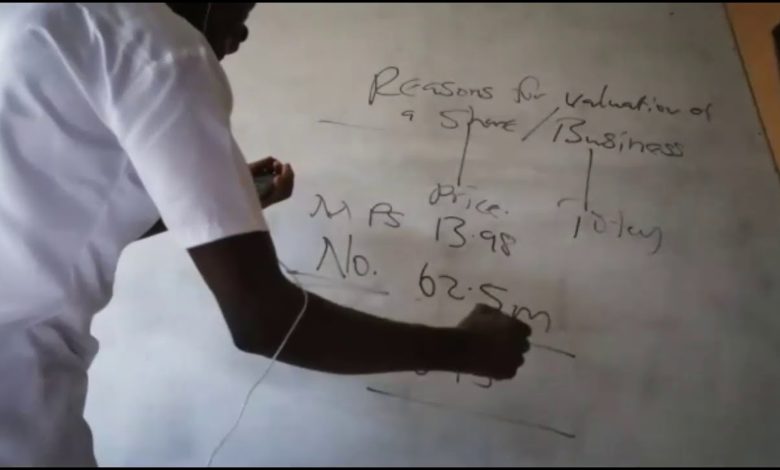 Reasons for valuation of
a Share / Business
Price.
MPS 13.98
No. 62.5m